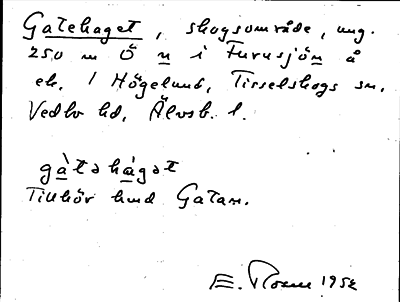 Gatehaget, skogsområde, ung.
250 m Ö n i Furusjön å
ek. 1 Högelund, Tisselskogs sn,
Vedbo hd, Älvsb. l.
gàtəhágət
Tillhör hmd Gatan.
E. Rosen 1952